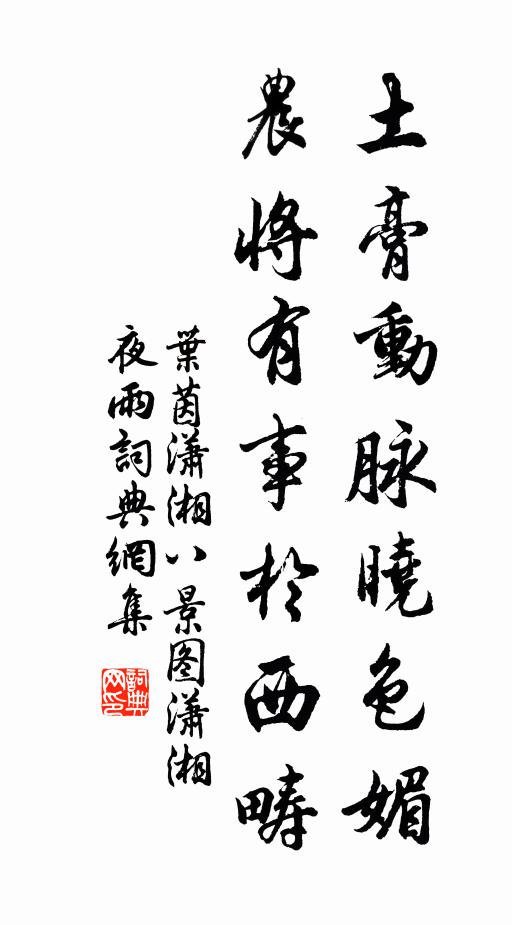 土膏動脉曉色媚
農將有事於西疇
葉茵瀟湘八景图瀟湘
夜雨詞典網集
詞典網印